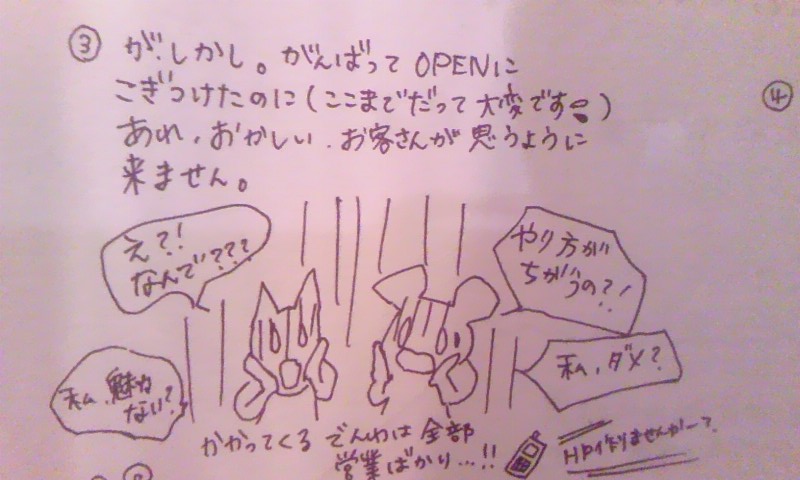 ③ が、しかし。がんばって OPENに
こぎつけたのに(ここまでだって大変です)
あれ、おかしい、お客さんが思うように
来ません。
④
え?!
なんで???
やり方が
ちがうの?!
私、魅力
ない?
私、ダメ?
かかってくる でんわは 全部
営業ばかり…!!
HP作りませんかー?